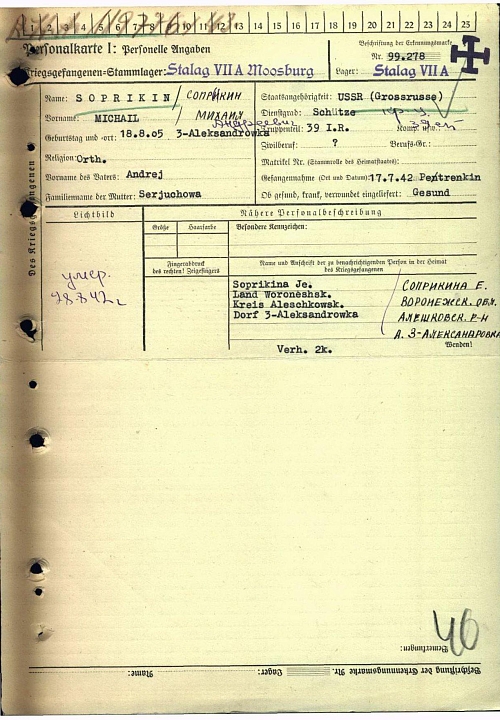 1 2 3 4 5 6 7 8 9 10 11 12 13 14 15 16 17 18 19 20 21 22 23 24 25
Personalkarte I: Personelle Angaben
Beschriftung der Erkennungsmarke
Nr. 99.278
Kriegsgefangenen-Stammlager: Stalag VII A Moosburg
Lager: Stalag VII A
Des Kriegsgefangenen
Name: SOPRIKIN / СОПРИКИН
Staatsangehörigkeit: USSR (Grossrusse)
Vorname: MICHAIL / МИХАИЛ
Андреевич
Dienstgrad: Schütze
Geburtstag und -ort: 18.8.05 3-Aleksandrowka
Truppenteil: 39 I.R. Komp. usw.:
Religion: Orth.
Zivilberuf: ? Berufs-Gr.:
Vorname des Vaters: Andrej
Matrikel Nr. (Stammrolle des Heimatstaates):
Gefangennahme (Ort und Datum): 17.7.42 Petrenkin
Familienname der Mutter: Serjuchowa
Ob gesund, krank, verwundet eingeliefert: Gesund
Lichtbild
Nähere Personalbeschreibung
Größe
Haarfarbe
Besondere Kennzeichen:
Fingerabdruck
des rechten! Zeigefingers
Name und Anschrift der zu benachrichtigenden Person in der Heimat
des Kriegsgefangenen
умер.
28.8.42 г
Soprikina Je.
Land Woroneshsk.
Kreis Aleschkowsk.
Dorf 3-Aleksandrowka
СОПРИКИНА Е.
ВОРОНЕЖСК. ОБЛ.
АЛЕШКОВСК. Р-Н
Д. 3-АЛЕКСАНДРОВКА
Wenden!
Verh. 2k.
46
Bemerkungen:
Beschriftung der Erkennungsmarke Nr.
Lager:
Name: